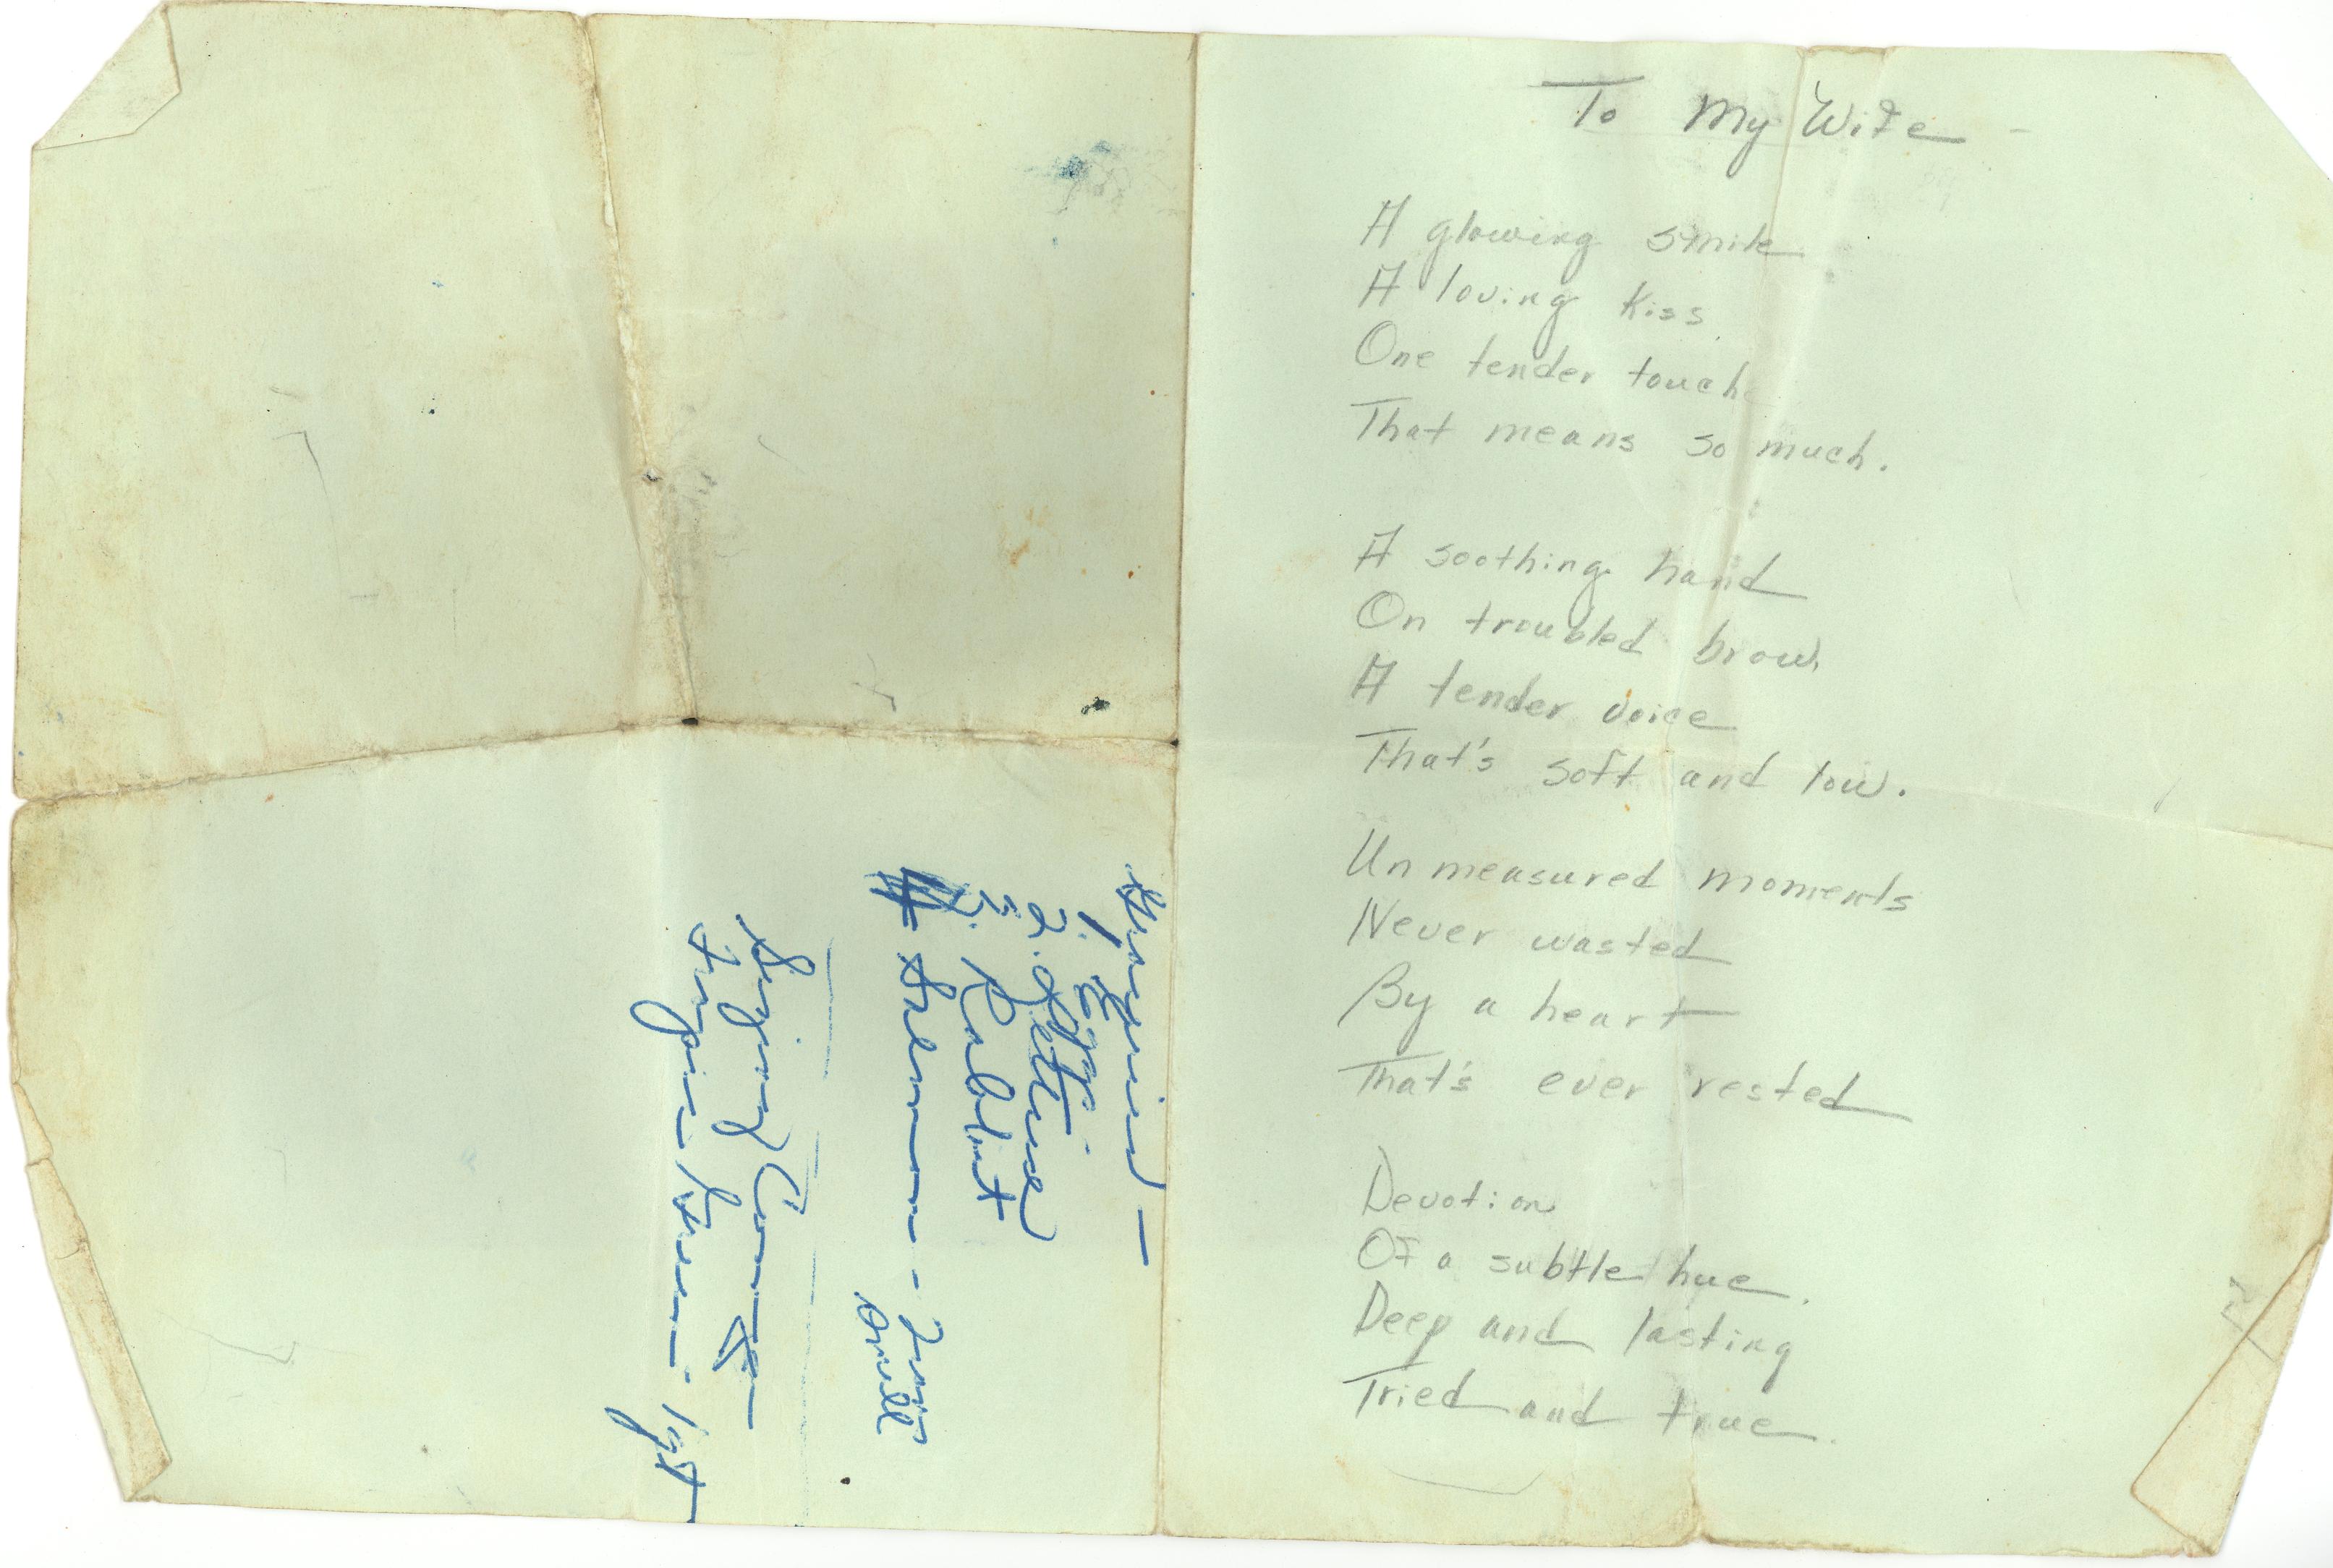 To My Wife -
A glowing smile
A loving kiss
One tender touch
That means so much.
A soothing hand
On troubled brow,
A tender voice
That's soft and low.
Unmeasured moments
Never wasted
By a heart
That's ever rested
Devotion
Of a subtle hue.
Deep and lasting
Tried and true.
1. Eggs.
2. Lettuce
3. Rabbit
Salmon - 2 -
small
Singing
- 1 qt